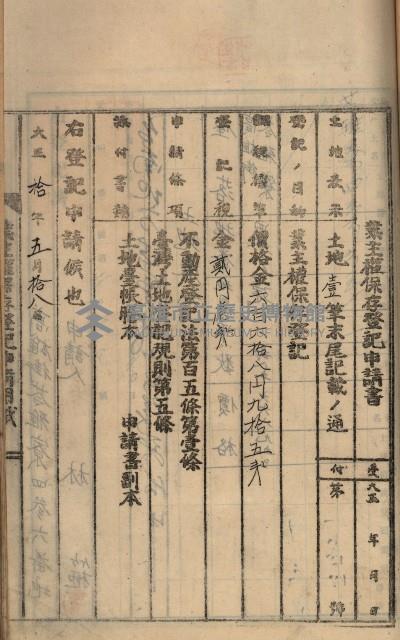 業主權保存登記申請書
受付
大正 年 月 日
第 號
土地表示 土地壹筆末尾記載ノ通
登記ノ目的 業主權保存登記
課税標準 價格金六百六拾八円九拾五戔
登記税 金貳円
申請條項 不動產登記法第百五條第壹條
臺灣土地登記規則第五條
添付書類 土地臺帳謄本 申請書副本
右登記申請候也
大正拾年五月拾八日
業主權保存登記申請用紙
高雄市立歷史博物館